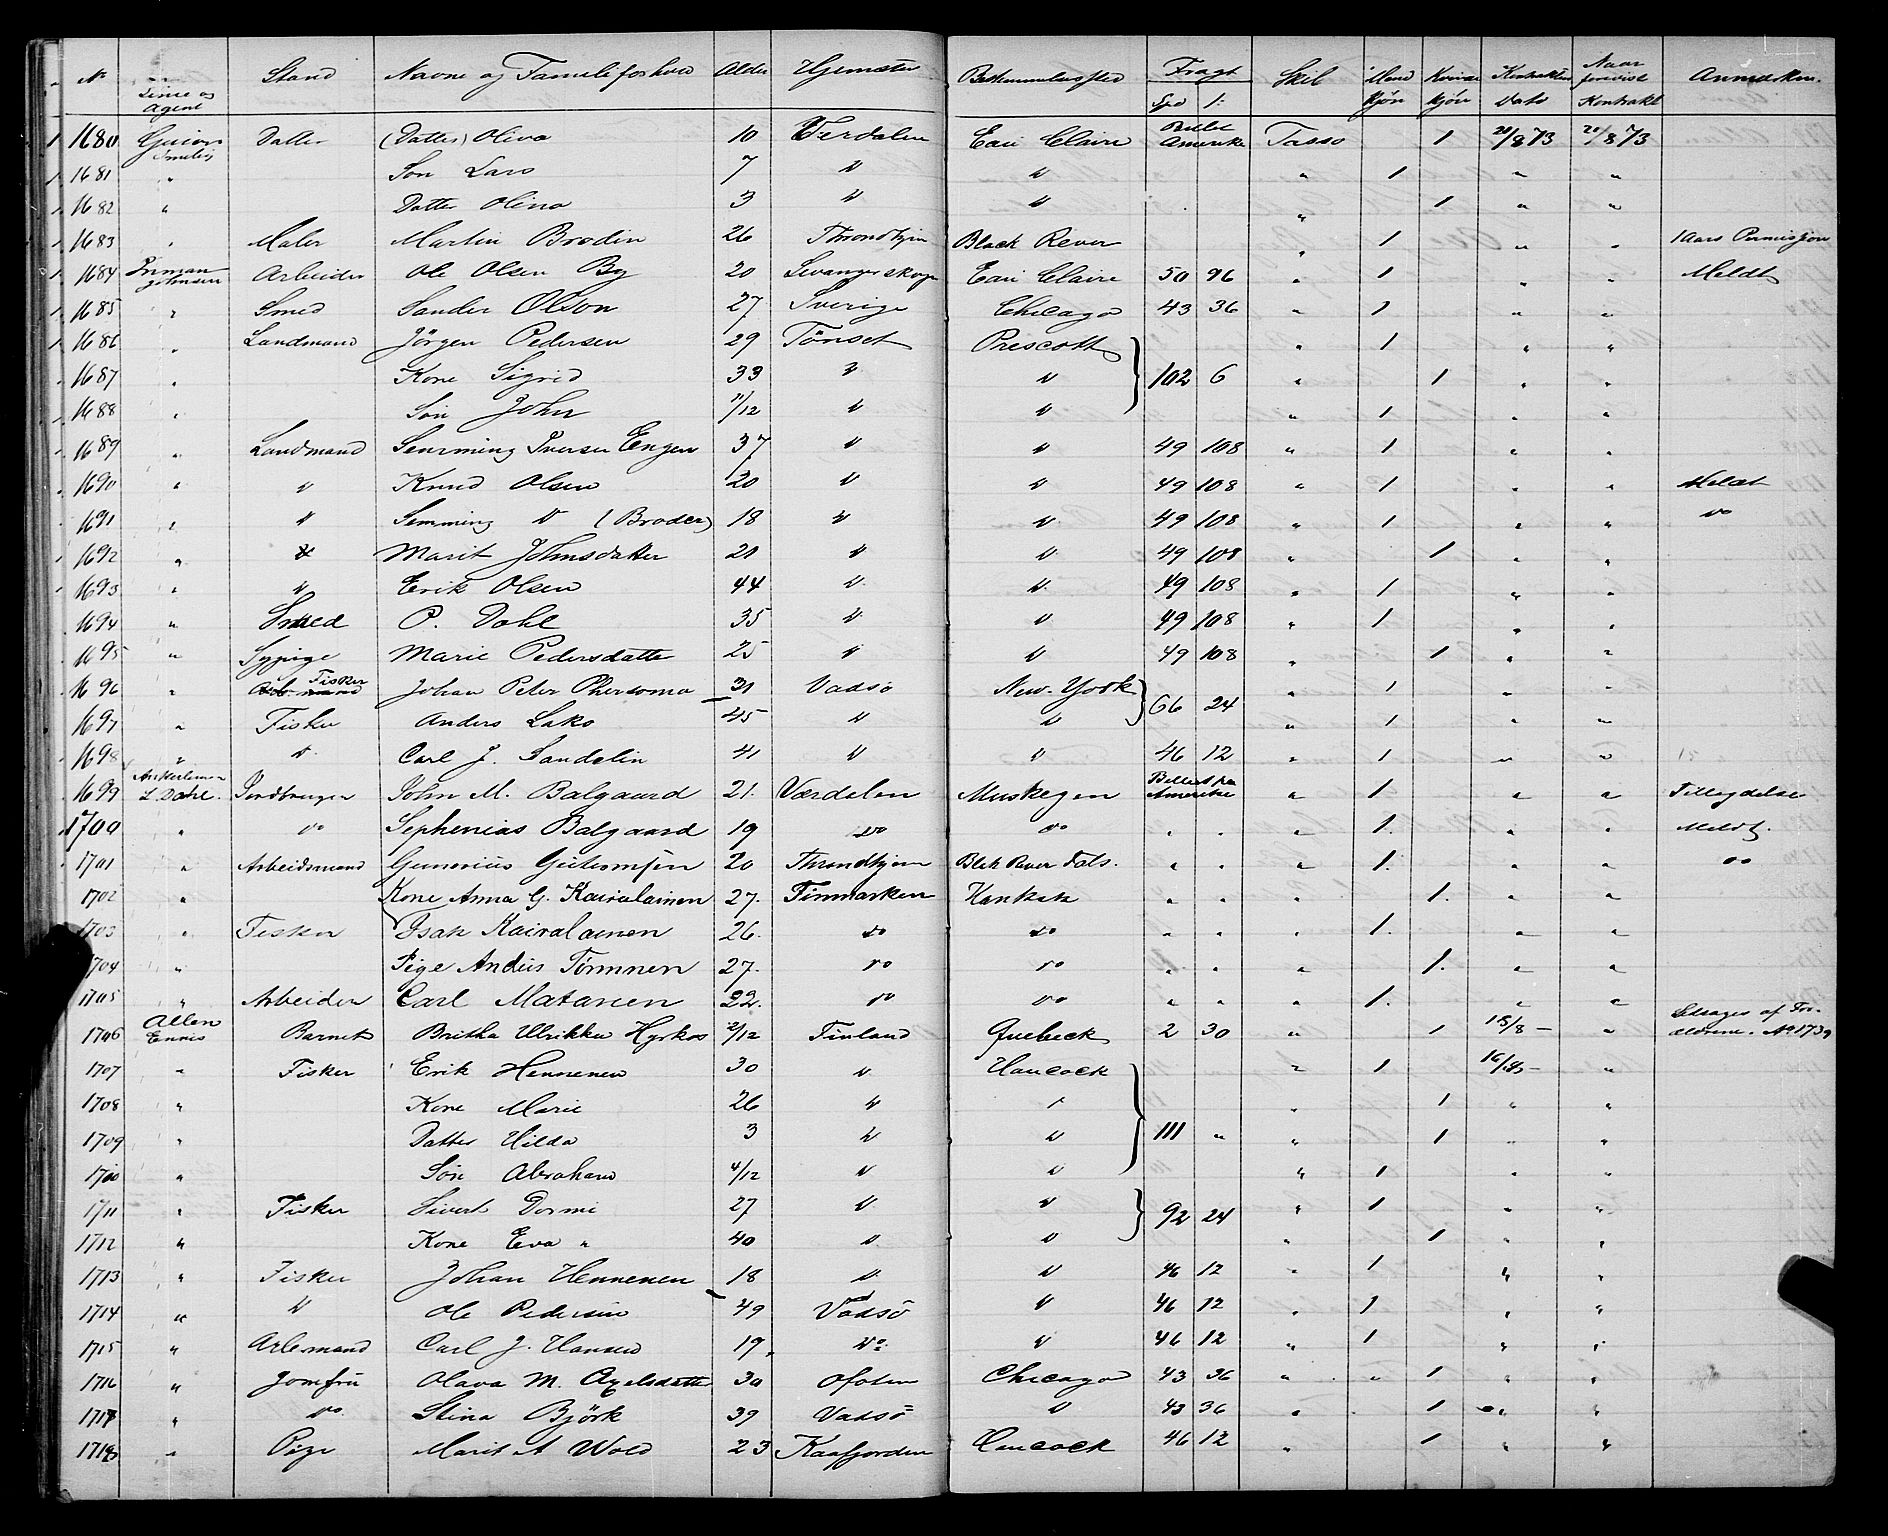 No Linie og Agent Stand Navne og Familieforhold Alder Hjemsted Bestemmelsessted Fragt Spd ß: Skib Mand kjøn Kvinde kjøn Kontraktens Dato Naar forevist Kontrakt Anmærkn.
1680 Guion Datter (Datter) Oliva 10 Verdalen Eau Claire Billet Amerika Tasso 1 20/8 73 20/8 73
1681 " Søn Lars 7 " " " 1 " "
1682 " Datter Olina 3 " " " 1 " "
1683 " Maler Martin Brodin 26 Throndhjem Black Rever " 1 " " 1 Aars Permisjon
1684 Inman Johnsen Arbeider Ole Olsen By 20 Levanger skogn Eau Claire 50 96 " 1 " " Meldt
1685 " Smed Sander Olson 27 Sverige Chicago 43 36 " 1 " "
1686 " Landmand Jörgen Pedersen 29 Tönset Prescott " 1 " "
1687 " Kone Sigrid 33 " " 102 6 " 1 " "
1688 " Søn John 11/12 " " " 1 " "
1689 " Landmand Semming Iversen Engen 37 " " 49 108 " 1 " "
1690 " " Knud Olsen 20 " " 49 108 " 1 " " Meldt
1691 " " Semming " (Broder) 18 " " 49 108 " 1 " " do
1692 " " Marit Johnsdatter 20 " " 49 108 " 1 " "
1693 " " Erik Olsen 44 " " 49 108 " 1 " "
1694 " Smed P. Dahl 35 " " 49 108 " 1 " "
1695 " Sypige Marie Pedersdatter 25 " " 49 108 " 1 " "
1696 " Fisker Johan Peter 31 Vadsö New-York " 1 " "
1697 " Fisker Anders Lako 45 " " 66 24 " 1 " "
1698 " " Carl J. Sandelin 41 " " 46 12 " 1 " "
1699 L. Dahl. Jordbruger John M. Balgaard 21. Værdalen Muskegen Billet fra Amerika " 1 " " Tillegdelse
1700 " do Sephenias Balgaard 19 do do " " " 1. " " Meldt.
1701 " Arbeidsmand Gunerius 20 Throndhjem Blak River Fals. " " " 1. " " do
1702 " Kone Anna G. Kairalainen 27. Finmarken Hankak " " " 1. " "
1703 " Fisker Isak Kairalainen 26. do do " " " 1. " "
1704 " Pige 27. do do " " " 1. " "
1705 " Arbeider Carl Matanen 22. do do " " " 1. " "
1706 Allen Ennis Barnet Britha Ulrikka Hyrkos 2/12 Finland Quebeck 2 30 " 1 15/8 - " af For-ældrene. No 1739
1707 " Fisker Erik Hennenen 30 " Hancock " 1 16/8 - "
1708 " Kone Marie 26 " " " 1 " "
1709 " Datter Hilda 3 " " 111 " " 1 " "
1710 " Søn Abraham 4/12 " " " 1 " "
1711 " Fisker Sivert Dormi 27 " " 92 24 " 1 " "
1712 " Kone Eva " 40 " " " 1 " "
1713 " Fisker Johan Hennenen 18 " " 46 12 " 1 " "
1714 " " Ole Pedersen 49 Vadsö " 46 12 " 1 " "
1715 " Arb.mand Carl J. Hansen 17 do " 46 12 " 1 " "
1716 " Jomfru Olava M. Axelsdatter 30 Ofoten Chicago 43 36 " " 1 " "
1717 " do Stina Björk 39 Vadsö " 43 36 " 1 " "
1718 " Pige Marit A Wold 23 Kaafjorden Hancock 46 12 " 1 " "